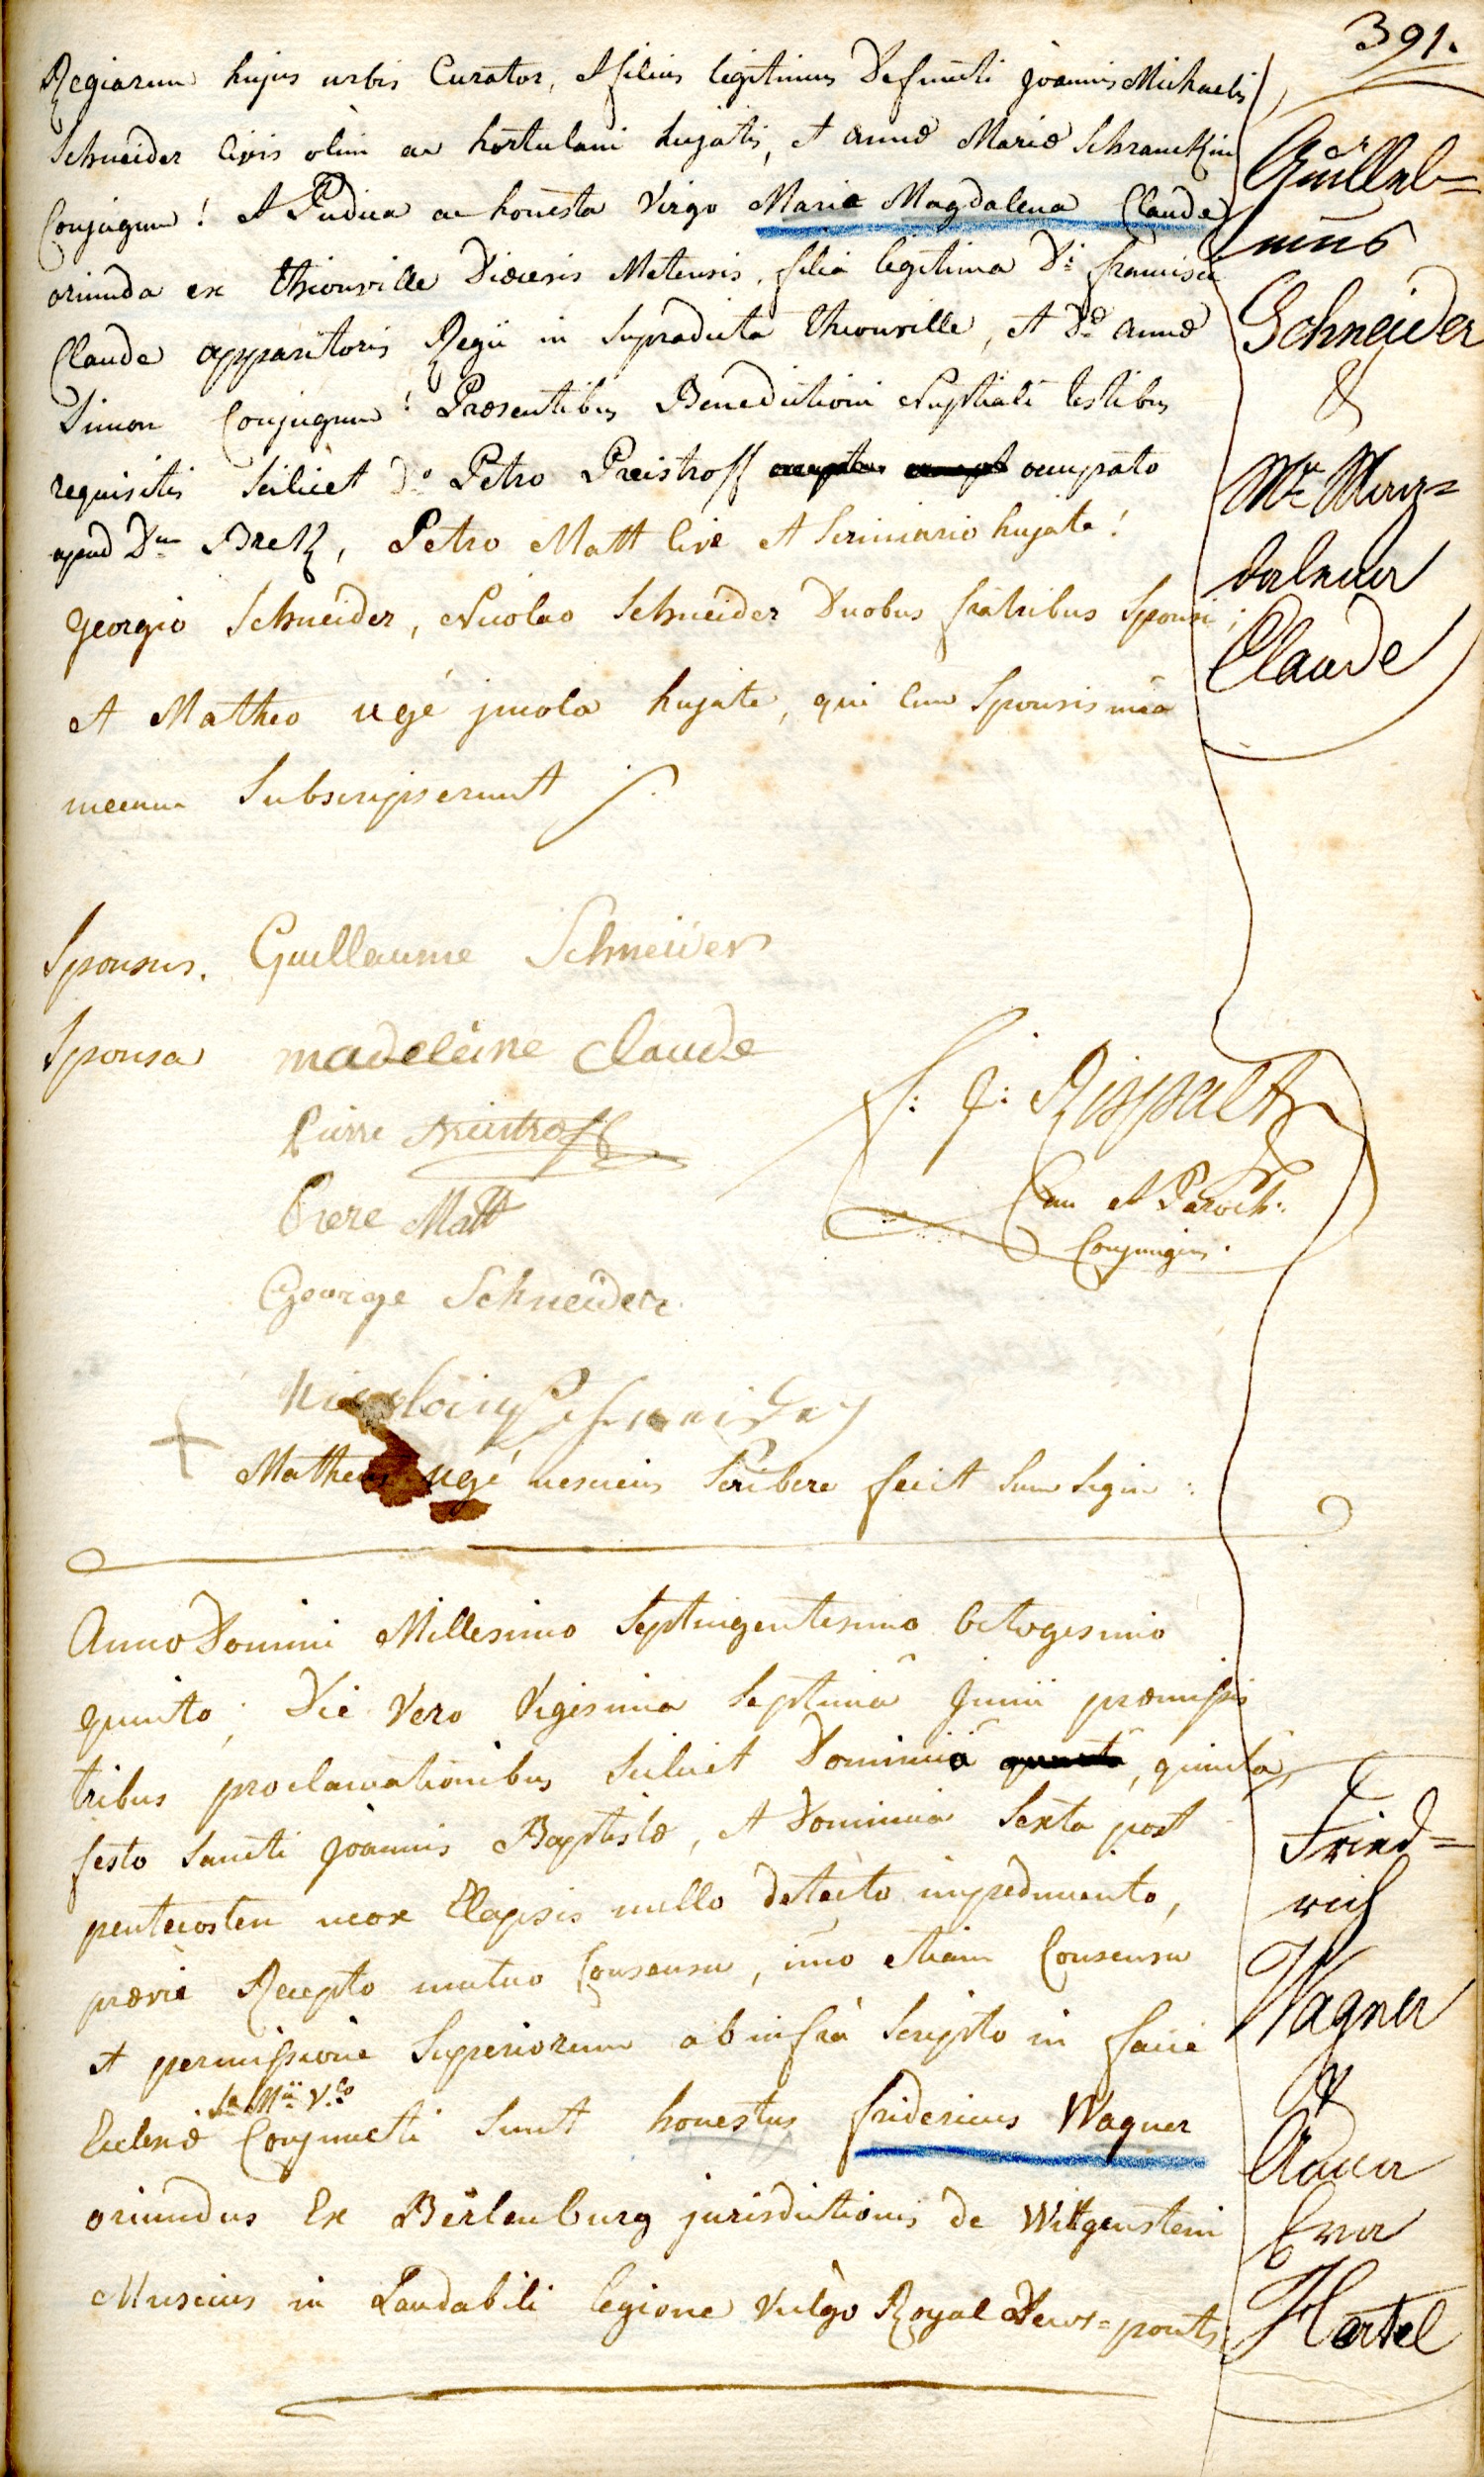 391.
Regiarum hujus urbis Curator, et filius legitimus Defuncti joannis Michaelis
Schneider civis olim ac hortulani hujatis, et annæ Mariæ Schranckin
Conjugum! et Pudica ac honesta Virgo Maria Magdalena Claude
oriunda ex thionville Diœcesis Metensis, filia legitima Di: francisci
Claude apparitoris Regii in supradicta thionville, et Dæ annæ
Simon Conjugum! Præsentibus Benedictioni Nuptiali testibus
requisitis scilicet Do Petro Preistroff occupato
apud Dum Bretz, Petro Matt cive et scriniario hujate!
georgio Schneider, Nicolao Schneider Duobus fratribus Sponsi;
et Matheo ugé jncola hujate, qui cum Sponsis
mecum Subscripserunt
Guillel=
mus
Schneider
&
Mr. Mag=
dalena
Claude
Sponsus. Guillaume Schneider
Sponsa madeleine claude
Pierre Preistroff
Piere Matt
George Schneider
Schneider
Matheus ugé nesciens scribere fecit suum signu:
Can et Paroch:
Conjungens.
anno Domini Millesimo Septingentesimo octogesimo
quinto, Die Vero Vigesima Septima Junii præmissis
tribus proclamationibus scilicet Dominica, quinta,
festo Sancti joannis Baptistæ, et Dominica Sexta post
pentecosten mox Elapsis nullo detecto impedimento,
prævie Recepto mutuo Consensu, imo etiam Consensu
et permissione Superiorum ab infra scripto in facie
Eclesiæ Conjuncti Sunt honestus fridericus Wagner
oriundus Ex Berlenburg jurisdictionis de Wittgenstein
Musicus in Laudabili legione Vulgo Royal Deux=ponts
Fried=
rich
Wagner
&
Anna
Eva
Hertel